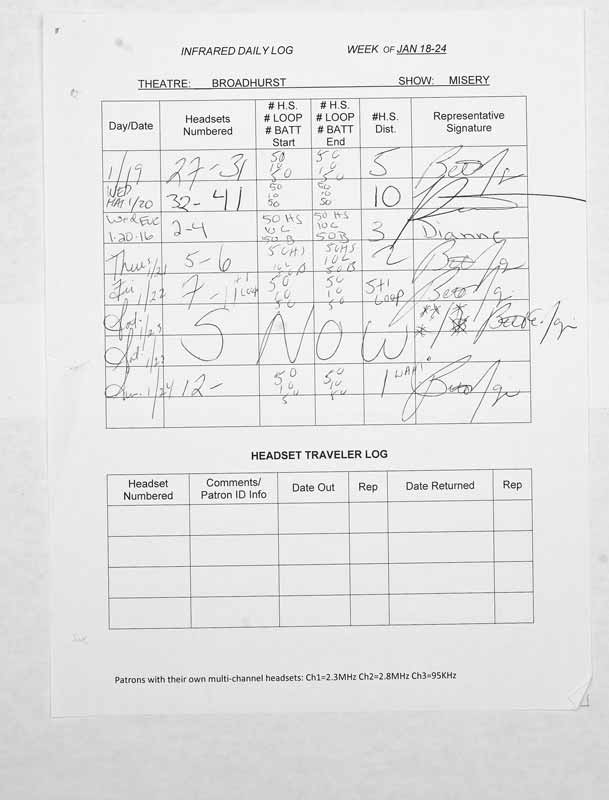 INFRARED DAILY LOG WEEK OF JAN 18-24
THEATRE: BROADHURST SHOW: MISERY
Day/Date
Headsets
Numbered
# H.S.
# LOOP
# BATT
Start
# H.S.
# LOOP
# BATT
End
#H.S.
Dist.
Representative
Signature
1/19
27-31
50
10
50
50
10
50
5
WED
MAT 1/20
32-41
50
10
50
50
10
50
10
Wed Eve
1-20-16
2-4
50 HS
10 L
50 B
50 HS
10 L
50 B
3
Dianne
Thurs 1/21
5-6
50 HS
10 L
50 B
50 HS
10 L
50 B
2
Fri 1/22
7-11
+1
Loop
50
10
50
50
10
50
5+1
Loop
Sat. 1/23
Sat. 1/23
SNOW
Sun. 1/24
12-
50
10
50
50
10
50
1
HEADSET TRAVELER LOG
Headset
Numbered
Comments/
Patron ID Info
Date Out
Rep
Date Returned
Rep
Patrons with their own multi-channel headsets: Ch1=2.3MHz Ch2=2.8MHz Ch3=95KHz